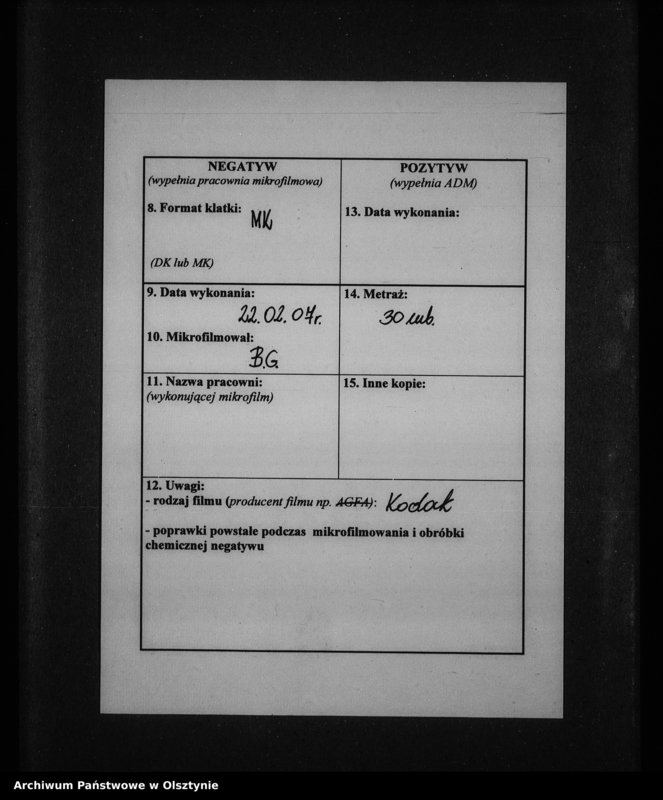 NEGATYW
(wypełnia pracownia mikrofilmowa)
8. Format klatki: MK
(DK lub MK)
POZYTYW
(wypełnia ADM)
13. Data wykonania:
9. Data wykonania:
22.02.07r.
10. Mikrofilmował:
B.G.
14. Metraż:
30 mb.
11. Nazwa pracowni:
(wykonującej mikrofilm)
15. Inne kopie:
12. Uwagi:
- rodzaj filmu (producent filmu np. AGFA): Kodak
- poprawki powstałe podczas mikrofilmowania i obróbki
chemicznej negatywu
Archiwum Państwowe w Olsztynie